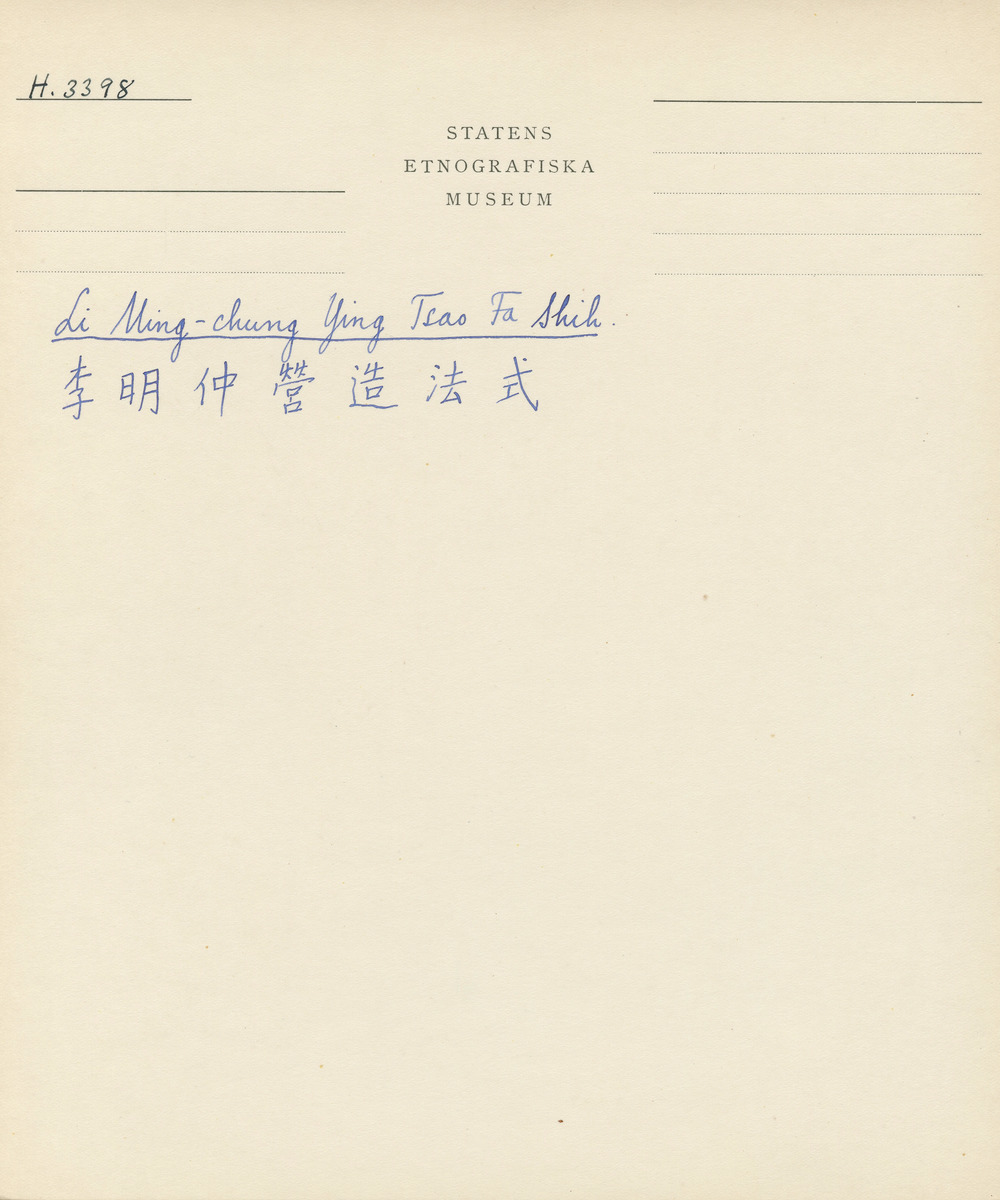 H. 3398
STATENS
ETNOGRAFISKA
MUSEUM
Li Ming-chung Ying Tsao Fa Shih.
李明仲營造法式